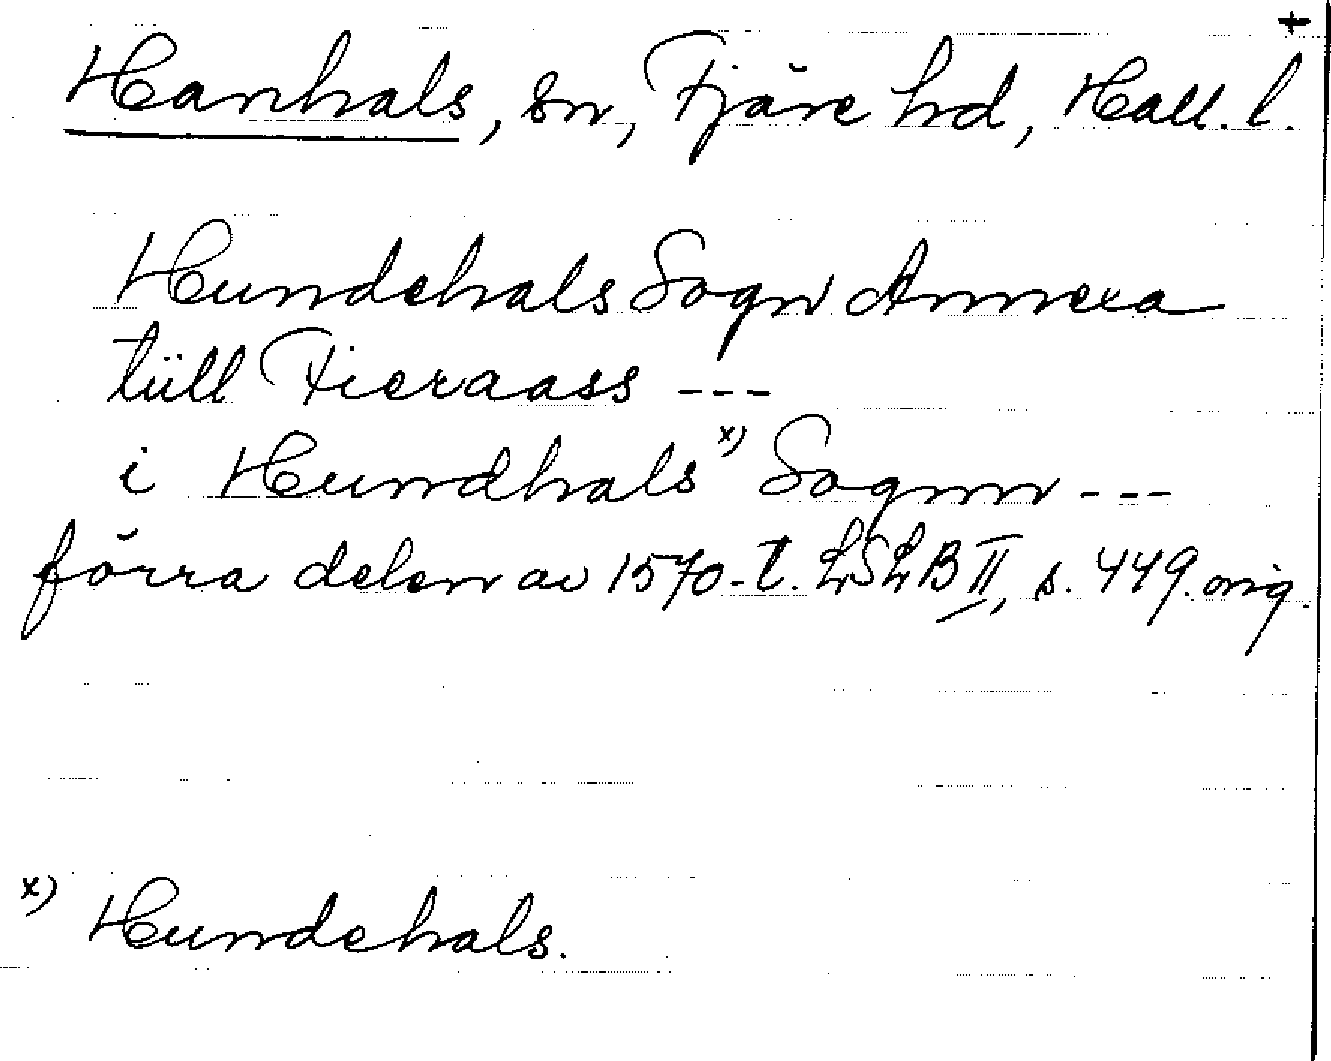 +
Hanhals, sn, Fjäre hd, Hall. l.
Hundehals Sogn Annexa
tüll Fieraass ---
i Hundhals x) Sognn ---
förra delen av 1570-t. LSLB II, s. 449. orig.
x) Hundehals.